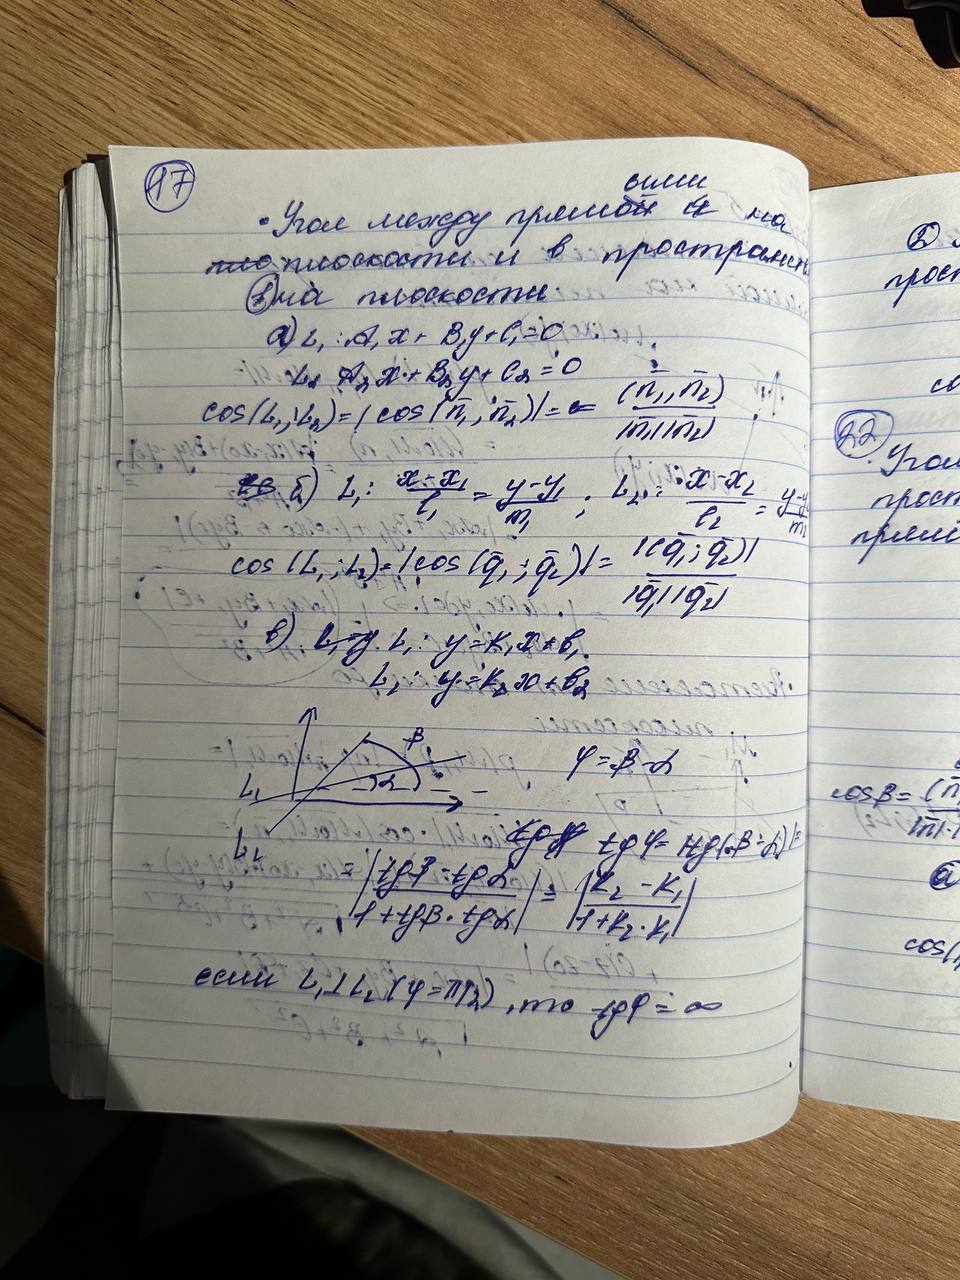 17
ыми
• Угол между прямой и на
плоскости и в пространств
① на плоскости
а) L₁: A₁x + B₁y + C₁ = 0
L₂ A₂x + B₂y + C₂ = 0
cos(L₁; L₂) = |cos(n̄₁; n̄₂)| = (n̄₁, n̄₂) / |n̄₁||n̄₂|
б) L₁: (x-x₁)/l₁ = (y-y₁)/m₁ ; L₂: (x-x₂)/l₂ = (y-y)/m₂
cos(L₁; L₂) = |cos(q̄₁; q̄₂)| = |(q̄₁; q̄₂)| / |q̄₁||q̄₂|
в) L₁: y = k₁x + b₁
L₂: y = k₂x + b₂
β
L₁ α φ = β - α
L₂
tg φ = |tg(β - α)| =
= |(tgβ - tgα) / (1 + tgβ · tgα)| = |(k₂ - k₁) / (1 + k₂ · k₁)|
если L₁ ⊥ L₂ (φ = π/2), то tgφ = ∞
②
прост
22
Угол
прост
прям
cosβ = (n̄
а
cos(